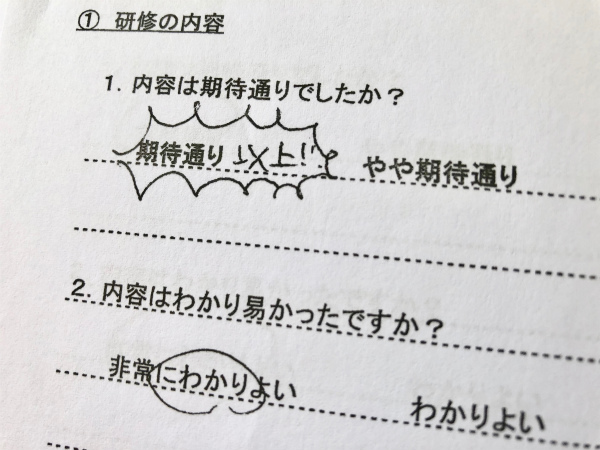 ① 研修の内容
1. 内容は期待通りでしたか?
期待通り 以上!! やや期待通り
2. 内容はわかり易かったですか?
非常にわかりよい わかりよい